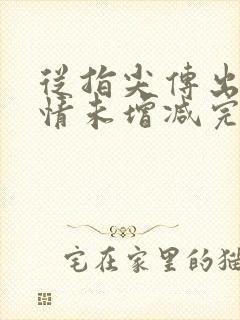 從指尖傳出
情未增減完
宅在家里的猫